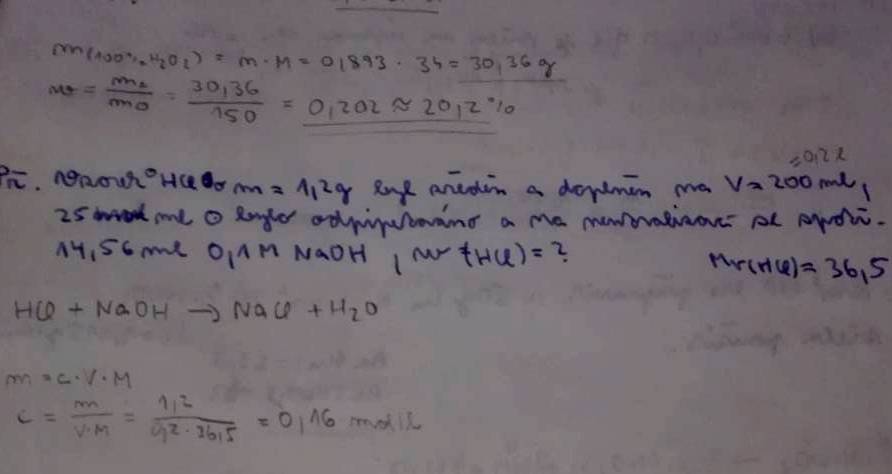 m(100% H₂O₂) = n · M = 0,893 · 34 = 30,36 g
w = m₀/m⊙ = 30,36/150 = 0,202 ≈ 20,2 %
= 0,2 l
Př. Vzorek HCl o m = 1,2g byl zředěn a doplněn na V = 200 ml,
25 ml ⊙ bylo odpipetováno a na neutralizaci se spotř.
14,56 ml 0,1 M NaOH, w (HCl) = ?
Mr(HCl) = 36,5
HCl + NaOH → NaCl + H₂O
m = c · V · M
c = m/V·M = 1,2/0,2 · 36,5 = 0,16 mol/l